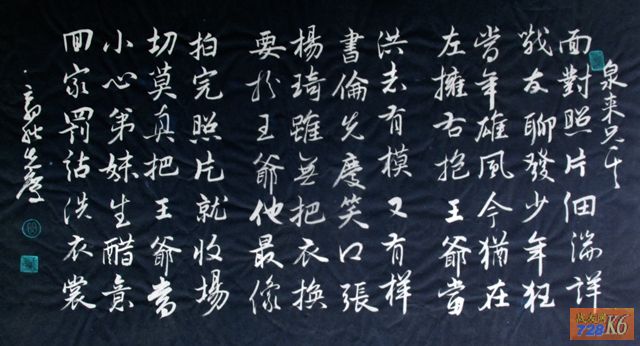 泉来兄
面對照片细端詳
战友聊發少年狂
當年雄風今猶在
左擁右抱王爺當
洪志有模又有样
書倫先慶笑口張
楊琦雖無把衣换
要於王爺他最像
拍完照片就收場
切莫真把王爺當
小心弟妹生醋意
回家罰站洗衣裳
先慶
战友网
728K6